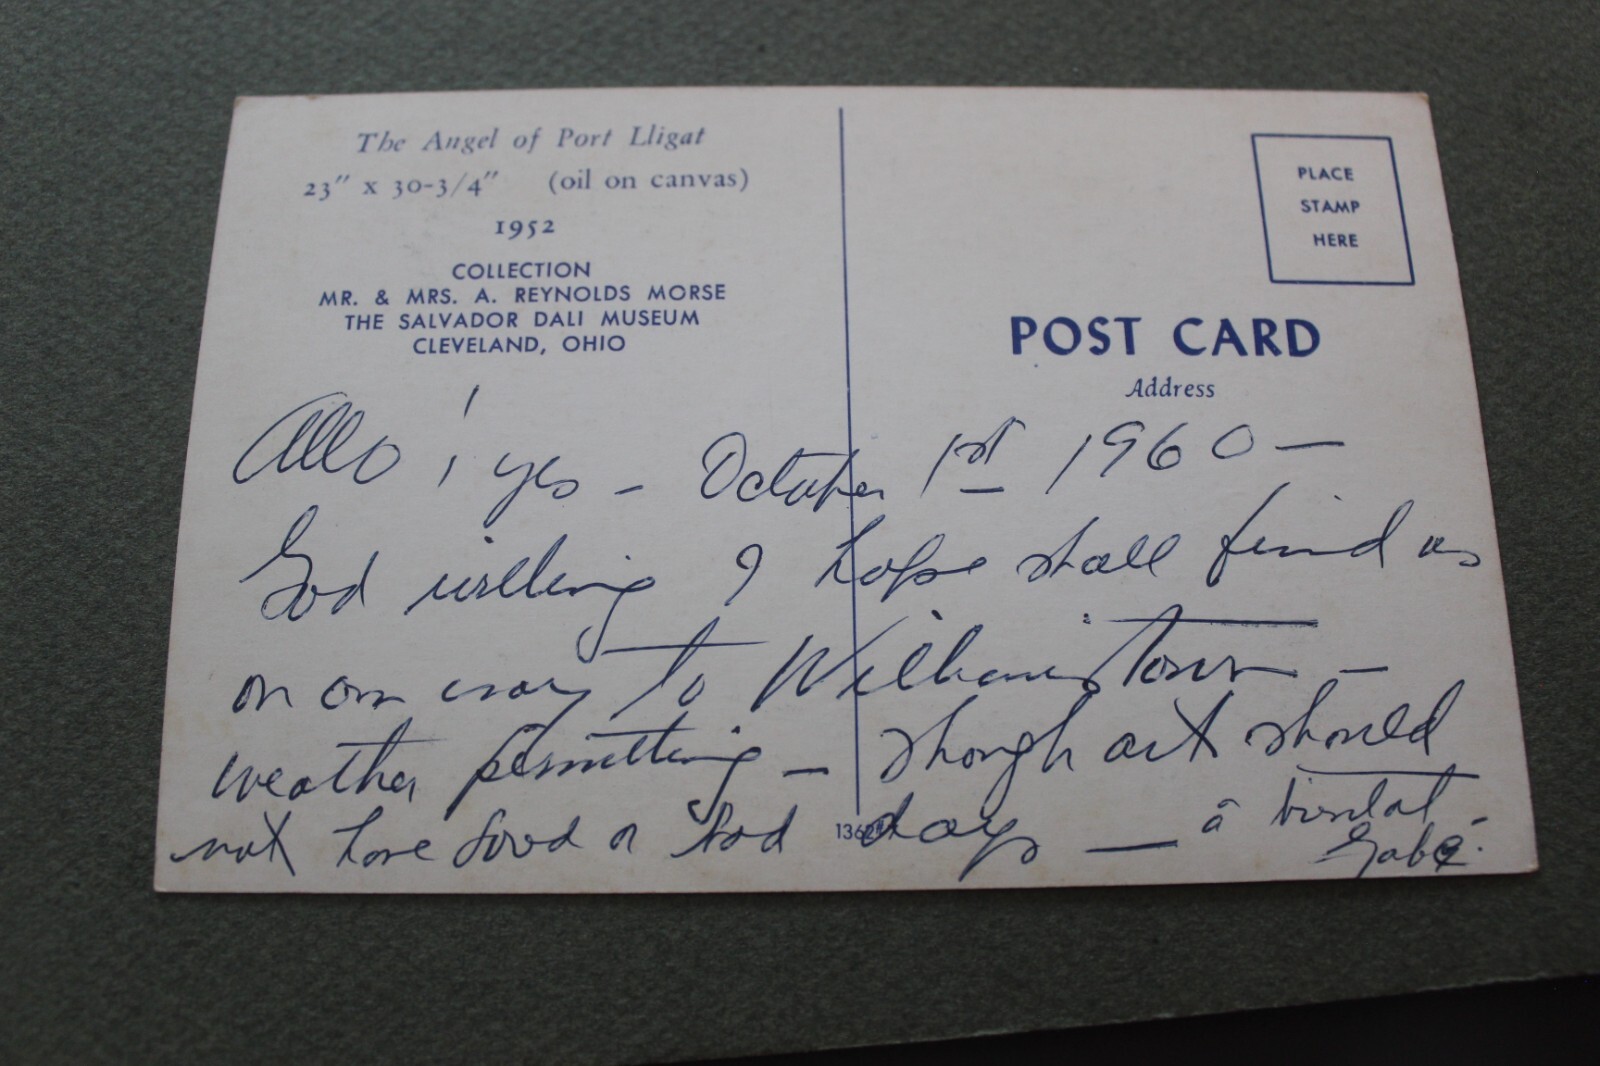 The Angel of Port Lligat
23" x 30-3/4" (oil on canvas)
1952
COLLECTION
MR. & MRS. A. REYNOLDS MORSE
THE SALVADOR DALI MUSEUM
CLEVELAND, OHIO
PLACE
STAMP
HERE
POST CARD
Address
Allo ! yes - October 1st 1960 -
God willing I hope shall find us
on our way to Williamstown -
weather permitting - though art should
not have good or bad days - à bientôt -
Gabé.